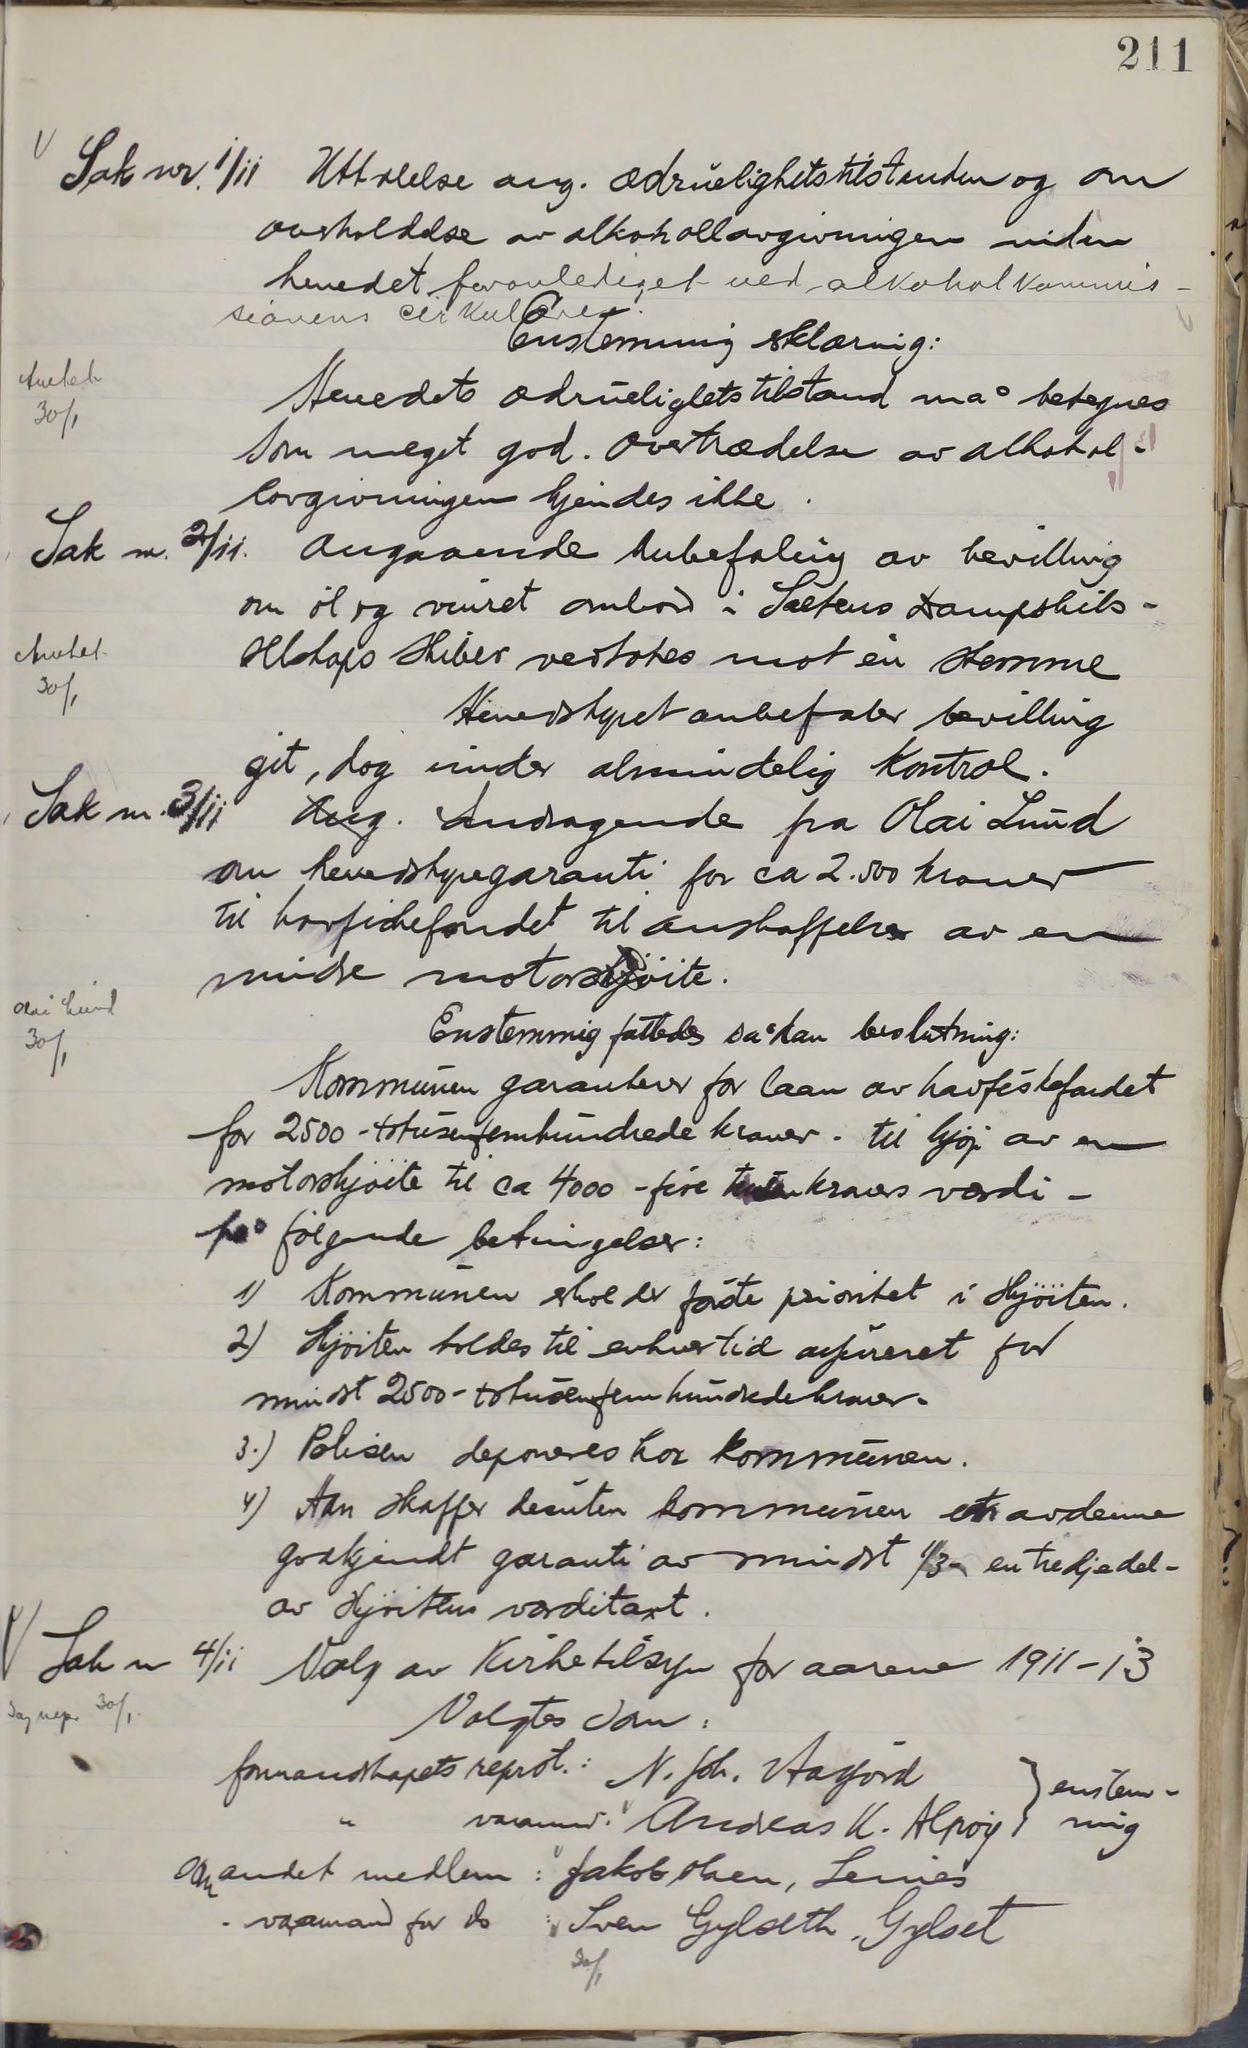 211
Sak nr. 1/11 Uttalelse ang. ædruelighetstilstanden og om
overholdelse av alkohollovgivningen inden
herredet foranlediget ved alkoholkommis-
sionens cirkulære.
Enstemmig erklæring:
Herredets ædruelighetstilstand må betegnes
som meget god. Overtrædelse av alkohol-
lovgivningen kjendes ikke.
30/1
Sak nr. 2/11. Angaaende anbefaling av bevilling
om øl og vinret ombord i Sæterns dampskibs-
selskaps skiber vedtokes mot en stemme
30/1
Herredstyret anbefaler bevilling
git, dog under almindelig kontrol.
Sak nr. 3/11 Ang. Andragende fra Olai Lund
om herredstyregaranti for ca 2.500 kroner
til havfiskefondet til anskaffelse av en
mindre motorskjøite.
Olai Lund
30/1
Enstemmig fattedes sådan beslutning:
Kommunen garanterer for laan av havfiskefondet
for 2500 - totusenfemhundrede kroner - til kjøp av en
motorskjøite til ca 4000 - fire tusen kroners værdi -
på følgende betingelser:
1) Kommunen erholder første prioritet i skjøiten.
2) Skjøiten holdes til enhver tid assureret for
mindst 2500 - totusenfemhundrede kroner.
3.) Polisen deponeres hos kommunen.
4) Han skaffer desuten kommunen en av denne
godkjendt garanti av mindst 1/3 - en tredjedel -
av skjøitens værditakst.
Sak nr 4/11 Valg av Kirketilsyn for aarene 1911-13
30/1.
Valgtes som:
formandskapets repræt.: N. Joh. Aasjord
" varamd. Andreas K. Alpøy } enstem-
mig
andet medlem: Jakob Olsen, Lernes
- varamand for do Sven Gylseth, Gylset
30/1